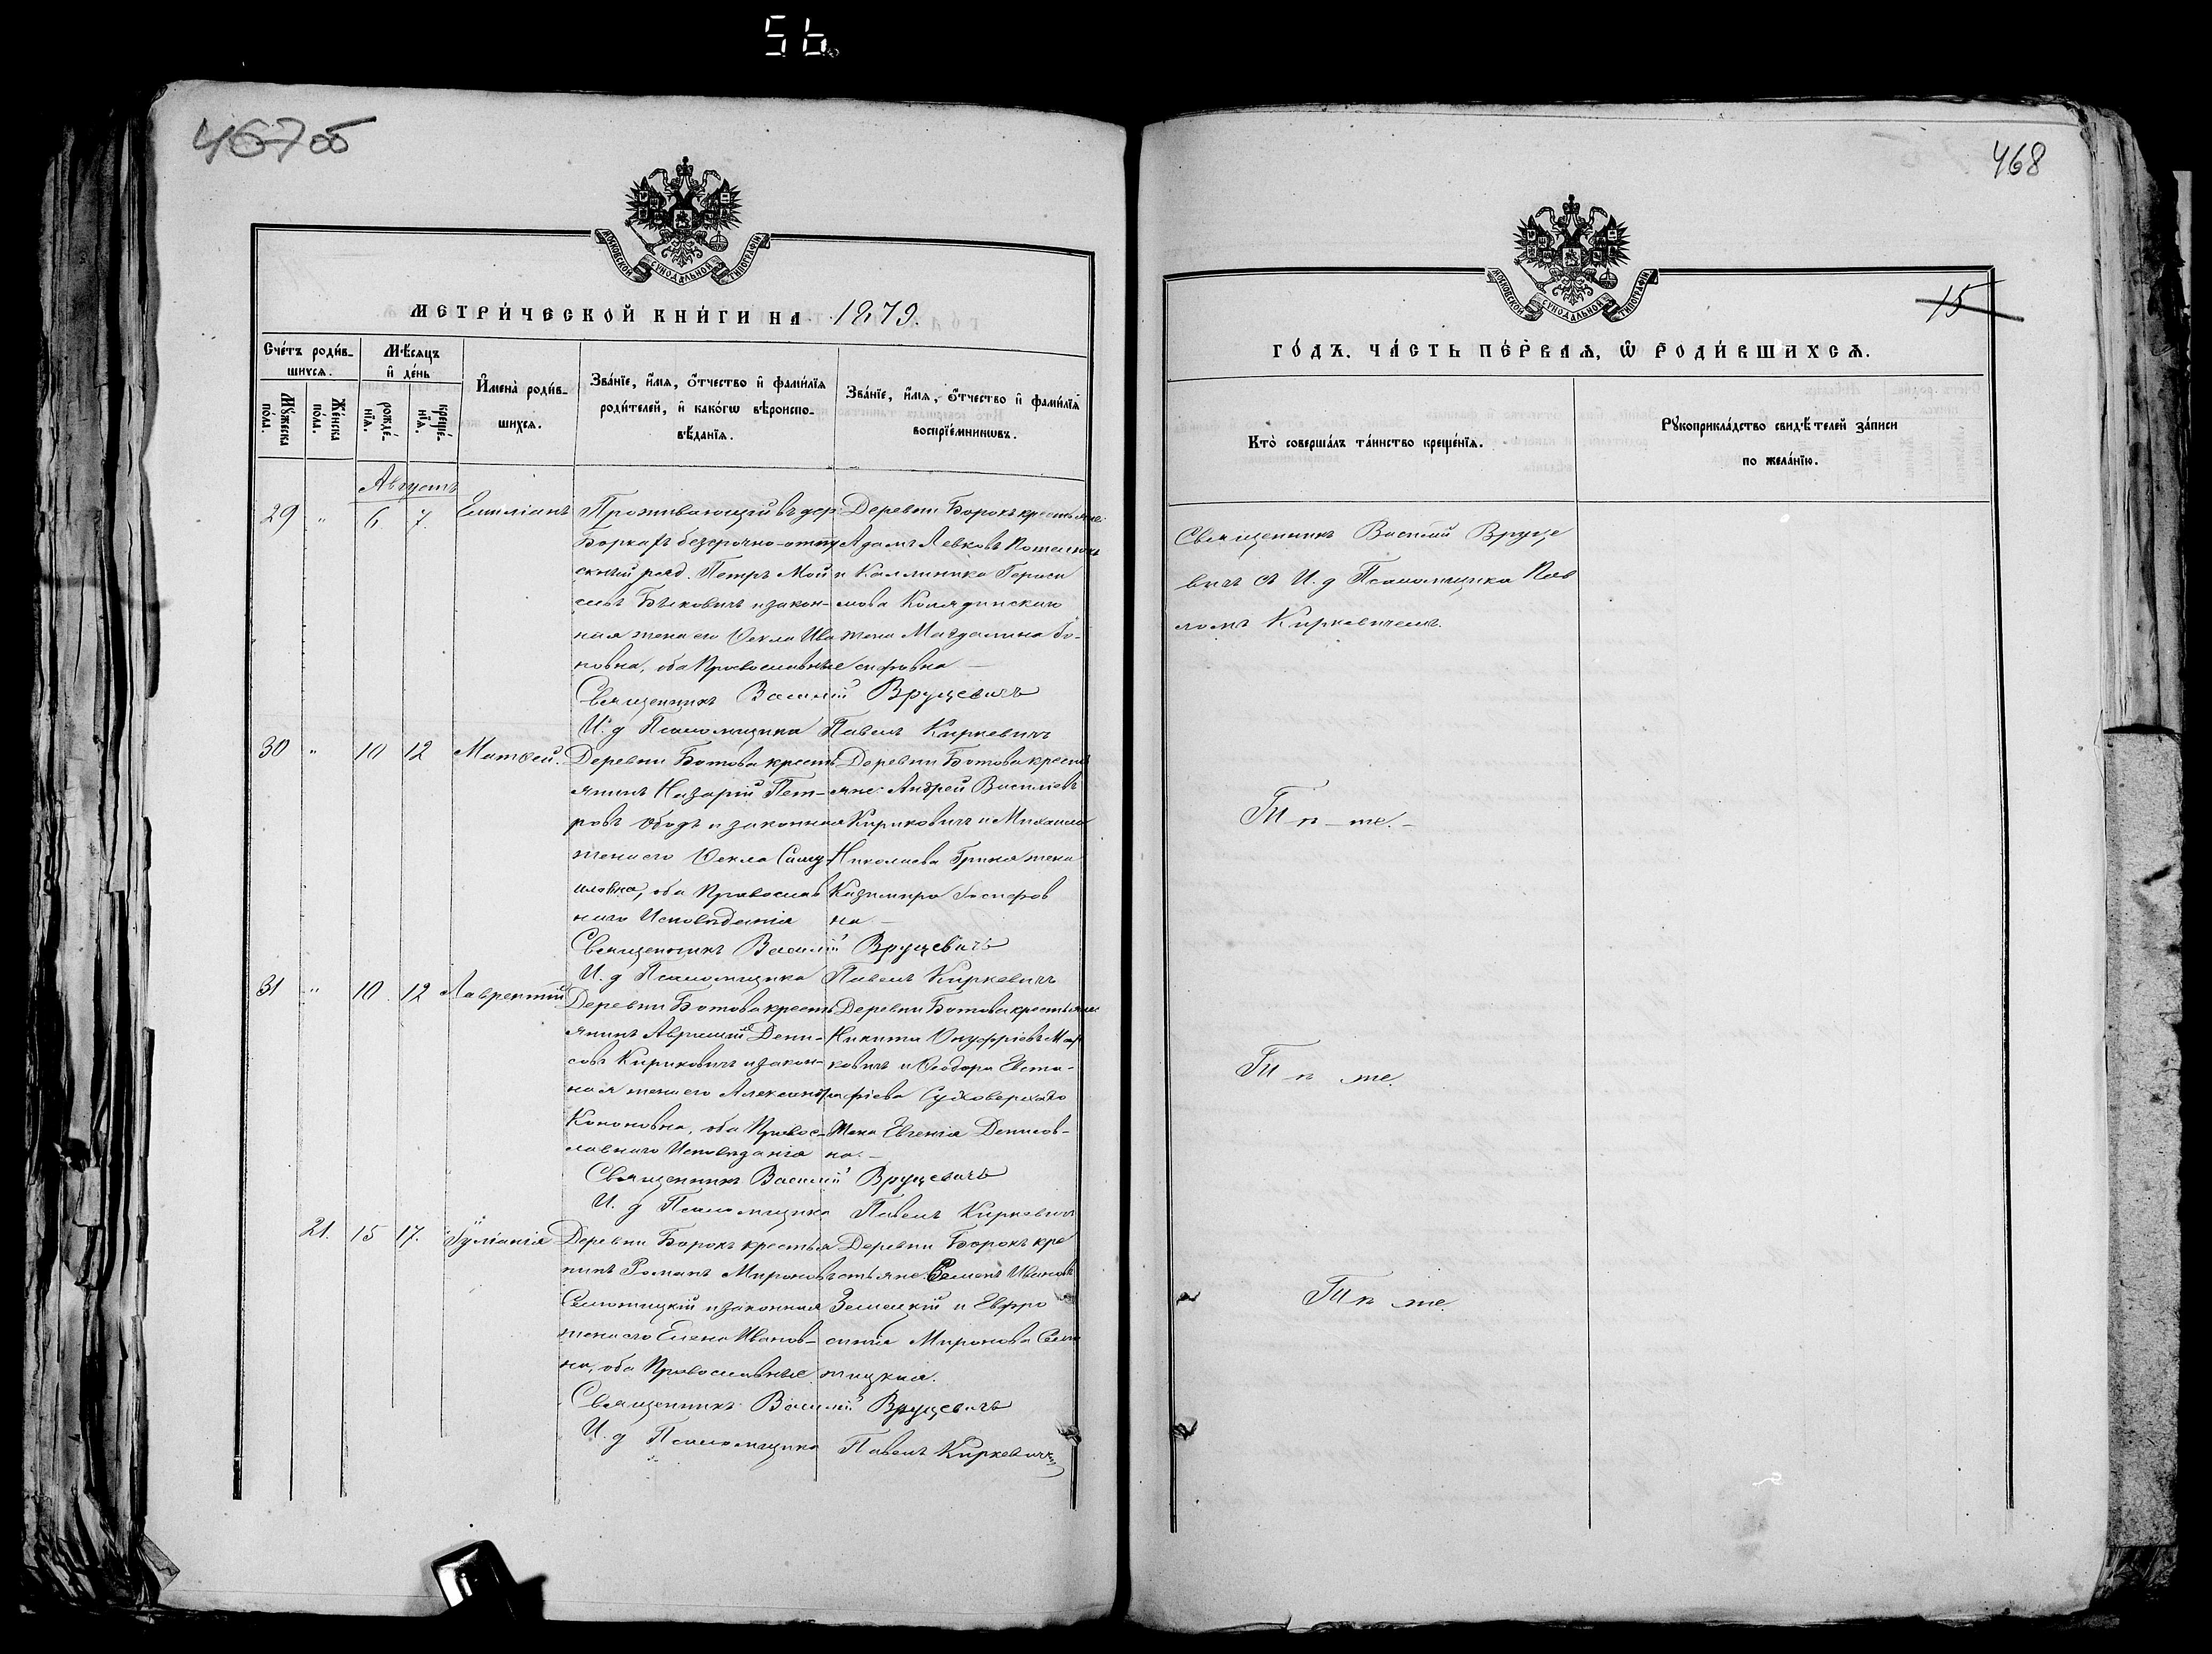 56.
467об
МОСКОВСКОЙ СУНОДАЛЬНОЙ ТИПОГРАФІИ
МЕТРИ́ЧЕСКОЙ КНИ́ГИ НА 1879.
Сче́тъ роди́вшихсѧ.
Мꙋ́жеска по́ла.
Же́нска по́ла.
Мѣ́сѧцъ и҆ де́нь
рожде́нїѧ.
креще́нїѧ.
И҆мена̀ роди́вшихсѧ.
Зва́нїе, и҆́мѧ, ѻ҆́тчество и҆ фами́лїѧ родителей, и҆ како́гѡ вѣроисповѣ́данїѧ.
Зва́нїе, и҆́мѧ, ѻ҆́тчество и҆ фами́лїѧ воспрїе́мникѡвъ.
Августъ
29 " 6 7. Емиліанъ
Проживающій въ дер.
Боркахъ безсрочно-отпу
скный ряд. Петръ Мои
сеевъ Быковичъ и закон-
ная жена его Ѳекла Ива
новна, оба Православные
Деревни Борокъ крестьяне
Адамъ Левковъ
и Каллиника Гераси
мова Колядинскаго
жена Магдалина Іо-
сифовна —
Священникъ Василій Вруцевичъ
И. д Псаломщика Павелъ Киркевичъ
30 " 10 12 Матѳей.
Деревни Ботова кресть
янинъ Назарій Пет-
ровъ Ободъ и законная
жена его Ѳекла Саму
иловна, оба Православ
наго Исповѣданія
Деревни Ботова кресть
яне: Андрей Василіевъ
Кириковичъ и Михаила
Николаева Грика жена
Казимира Іосифов
на —
Священникъ Василій Вруцевичъ
И. д Псаломщика Павелъ Киркевичъ
31 " 10. 12 Лаврентій
Деревни Ботова кресть
янинъ Авраамій Дени-
совъ Кириковичъ и закон-
ная жена его Александра
Кононовна, оба Правос-
лавнаго Исповѣданія
Деревни Ботова крестьяне
Никита Онуфріевъ Мар
ковичъ и Ѳеодора Евста-
фіева Суховерхаго
жена Евгенія Денисов-
на. —
Священникъ Василій Вруцевичъ
И. д Псаломщика Павелъ Киркевичъ
21. 15 17. Іуліанія
Деревни Борокъ крестья
нинъ Романъ Мироновъ
Семотицкій и законная
жена его Елена Иванов-
на, оба Православные
Деревни Борокъ кре
стьяне: Семенъ Ивановъ
Земецкій и Евфро
синія Миронова Семо
тицкая.
Священникъ Василій Вруцевичъ
И. д Псаломщика Павелъ Киркевичъ
468
15
МОСКОВСКОЙ СУНОДАЛЬНОЙ ТИПОГРАФІИ
ГО́ДЪ. ЧА́СТЬ ПЕ́РВАѦ, Ѡ҆ РОДИ́ВШИХСѦ.
Кто̀ соверша́лъ та́инство креще́нїѧ.
Рꙋкоприкла́дство свидѣ́телей за́писи
по жела́нїю.
Священникъ Василій Вруце
вичъ съ И. д Псаломщика Пав
ломъ Киркевичемъ.
Тѣ-же.-
Тѣ же.
Тѣ же.